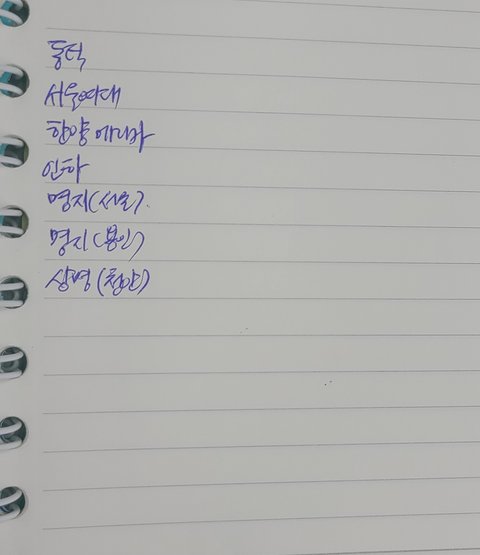 동덕
서울여대
한양 에리카
인하
명지(서울).
명지(용인)
상명(천안)